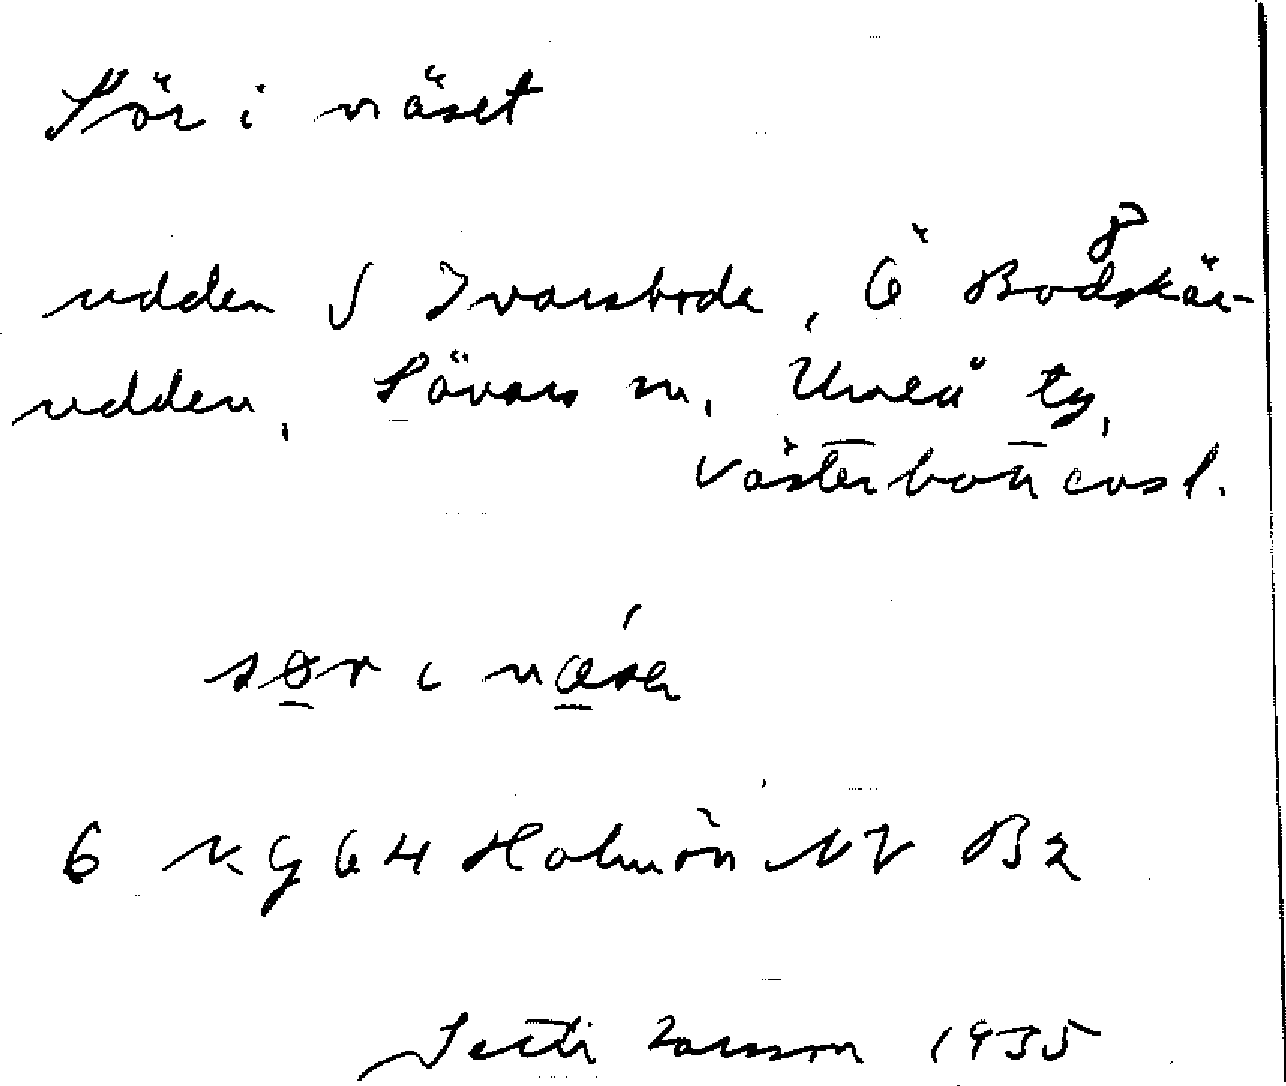 Sör i näset
udden S Ivarsboda, Ö Bodskär-
udden, Sävars sn, Umeå tg,
Västerbottens l.
sør i næsɘ
6 N.G 64 Holmön NV B2
Larsson 1935